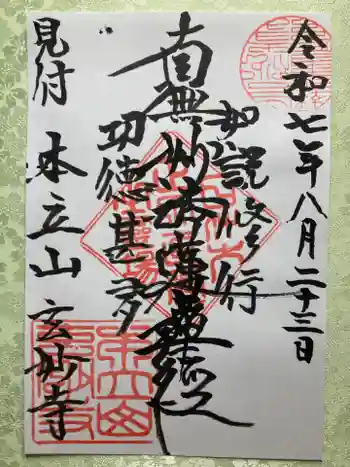 令和七年八月二十三日
如説修行
南無妙法蓮華経
功徳甚多
見付 本立山 玄妙寺